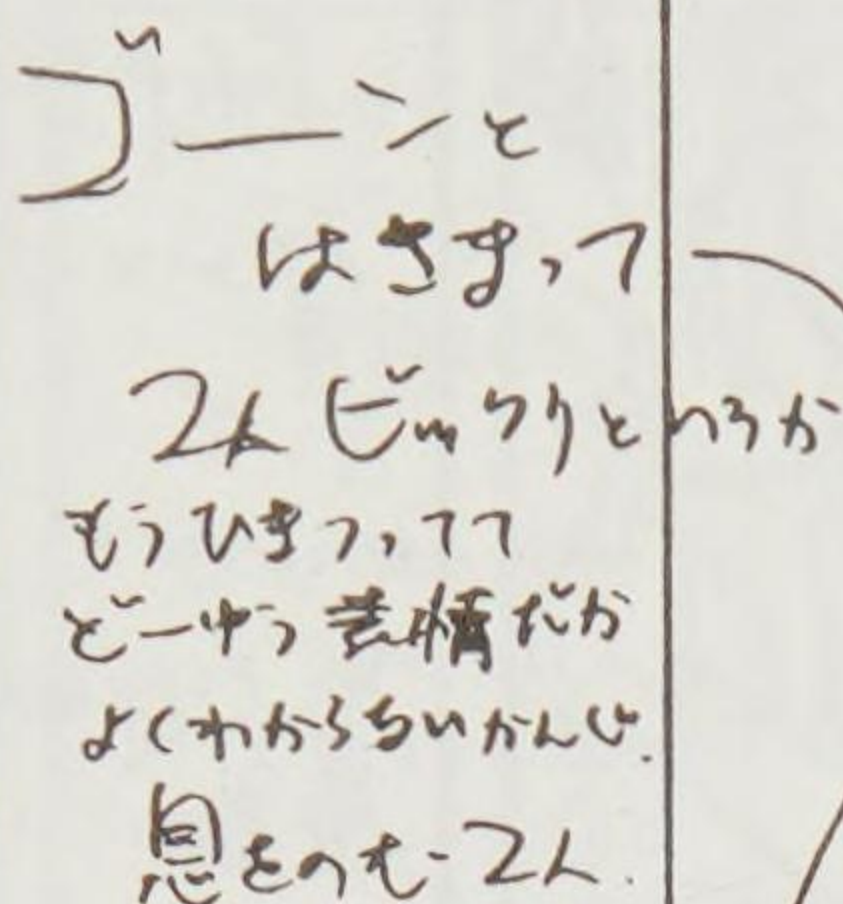 ゴーンと
はさまって
2人ビックリというか
もうひきつってて
どーゆう表情だか
よくわからないかんじ.
息をのむ 2人.